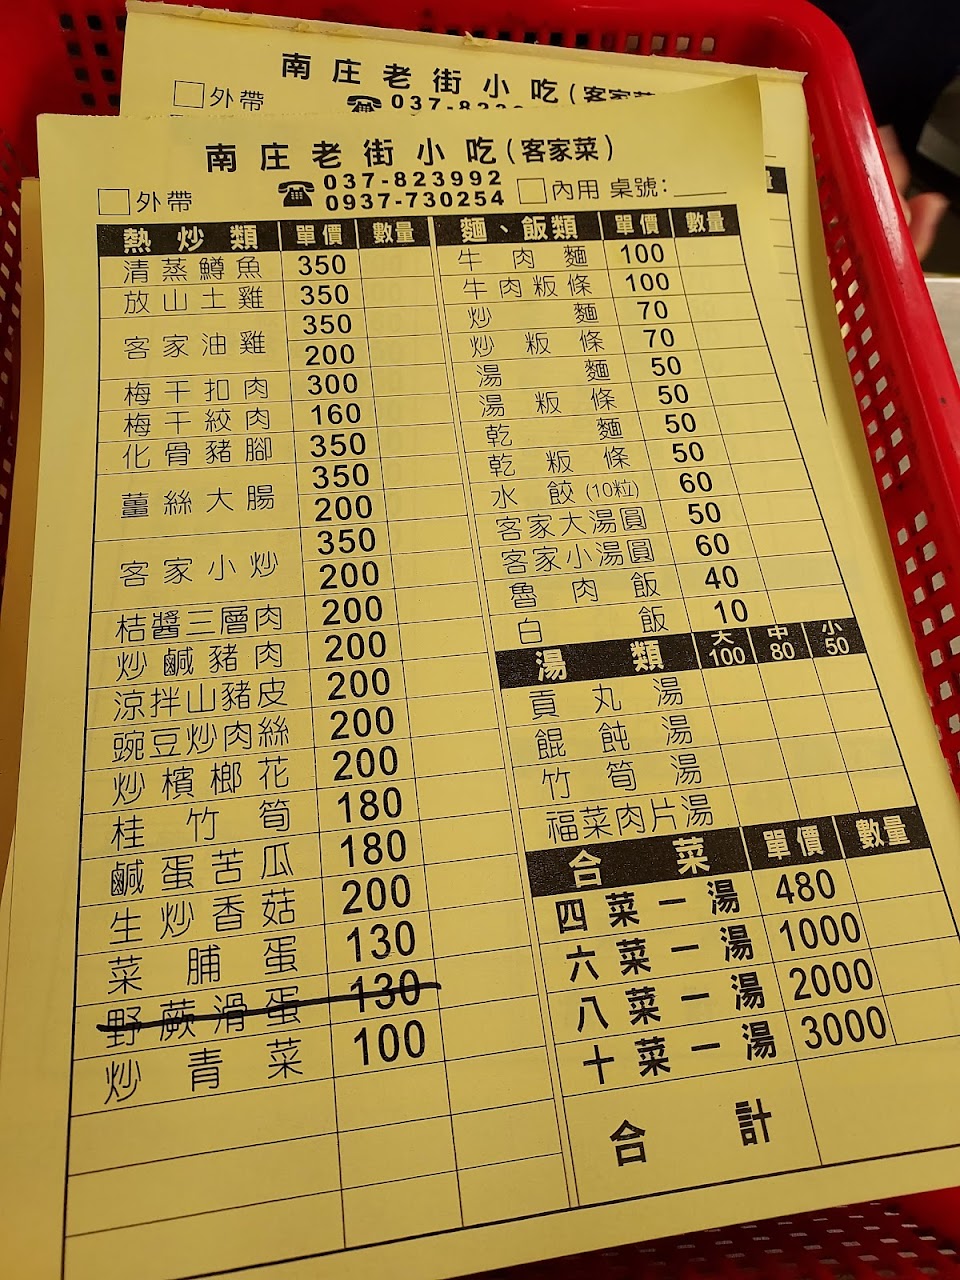 南庄老街小吃(客家菜
□外帶 ☎037-823
南庄老街小吃(客家菜)
□外帶 ☎037-823992 0937-730254 □內用 桌號:____
熱炒類 單價 數量
清蒸鱒魚 350
放山土雞 350
客家油雞 350
200
梅干扣肉 300
梅干絞肉 160
化骨豬腳 350
薑絲大腸 350
200
客家小炒 350
200
桔醬三層肉 200
炒鹹豬肉 200
涼拌山豬皮 200
豌豆炒肉絲 200
炒檳榔花 200
桂竹筍 180
鹹蛋苦瓜 180
生炒香菇 200
菜脯蛋 130
野蕨滑蛋 130
炒青菜 100
麵、飯類 單價 數量
牛肉麵 100
牛肉粄條 100
炒麵 70
炒粄條 70
湯麵 50
湯粄條 50
乾麵 50
乾粄條 50
水餃(10粒) 60
客家大湯圓 50
客家小湯圓 60
魯肉飯 40
白飯 10
湯類 大100 中80 小50
貢丸湯
餛飩湯
竹筍湯
福菜肉片湯
合菜 單價 數量
四菜一湯 480
六菜一湯 1000
八菜一湯 2000
十菜一湯 3000
合計